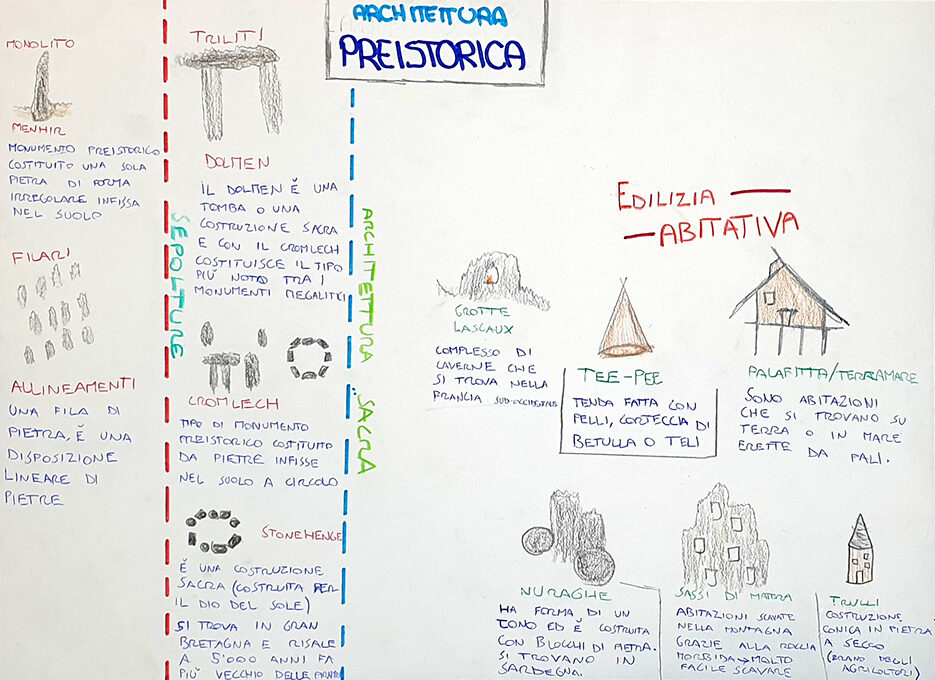 ARCHITETTURA
PREISTORICA
MONOLITO
MENHIR
MONUMENTO PREISTORICO
COSTITUITO UNA SOLA
PIETRA DI FORMA
IRREGOLARE INFISSA
NEL SUOLO
FILARI
ALLINEAMENTI
UNA FILA DI
PIETRA, È UNA
DISPOSIZIONE
LINEARE DI
PIETRE
SEPOLTURE
TRILITI
DOLMEN
IL DOLMEN È UNA
TOMBA O UNA
COSTRUZIONE SACRA
E CON IL CROMLECH
COSTITUISCE IL TIPO
PIÙ NOTO TRA I
MONUMENTI MEGALITICI
CROMLECH
TIPO DI MONUMENTO
PREISTORICO COSTITUITO
DA PIETRE INFISSE
NEL SUOLO A CIRCOLO
STONEHENGE
È UNA COSTRUZIONE
SACRA (COSTRUITA PER
IL DIO DEL SOLE)
SI TROVA IN GRAN
BRETAGNA E RISALE
A 5'000 ANNI FA
PIÙ VECCHIO DELLE
ARCHITETTURA SACRA
EDILIZIA
ABITATIVA
GROTTE
LASCAUX
COMPLESSO DI
CAVERNE CHE
SI TROVA NELLA
FRANCIA SUD-OCCIDENTALE
TEE-PEE
TENDA FATTA CON
PELLI, CORTECCIA DI
BETULLA O TELI
PALAFITTA/TERRAMARE
SONO ABITAZIONI
CHE SI TROVANO SU
TERRA O IN MARE
ERETTE DA PALI.
NURAGHE
HA FORMA DI UN
CONO ED È COSTRUITA
CON BLOCCHI DI PIETRA.
SI TROVANO IN
SARDEGNA.
SASSI DI MATERA
ABITAZIONI SCAVATE
NELLA MONTAGNA
GRAZIE ALLA ROCCIA
MORBIDA→MOLTO
FACILE SCAVARE
TRULLI
COSTRUZIONE
CONICA IN PIETRA
A SECCO
(ERANO DEGLI
AGRICOLTORI)